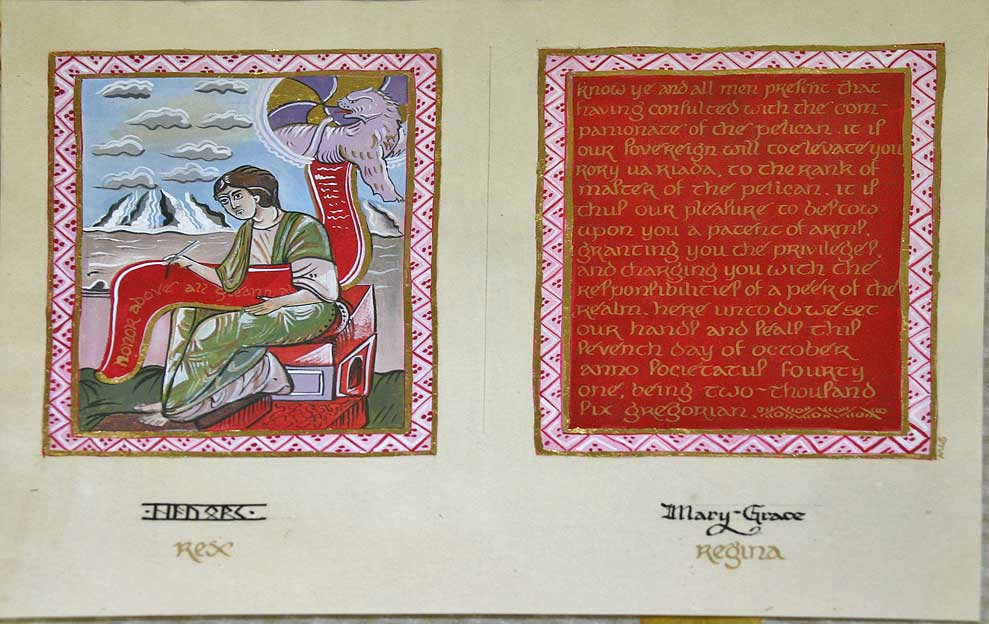 honor above all
know ye and all men present that
having consulted with the com-
panionate of the pelican. it is
our sovereign will to elevate you
rory ua riada, to the rank of
master of the pelican. it is
thus our pleasure to bestow
upon you a patent of arms,
granting you the privileges,
and charging you with the
responsibilities of a peer of the
realm. here unto do we set
our hands and seals this
seventh day of october
anno societatus fourty
one, being two-thousand
six gregorian.
Rex
Mary-Grace
Regina